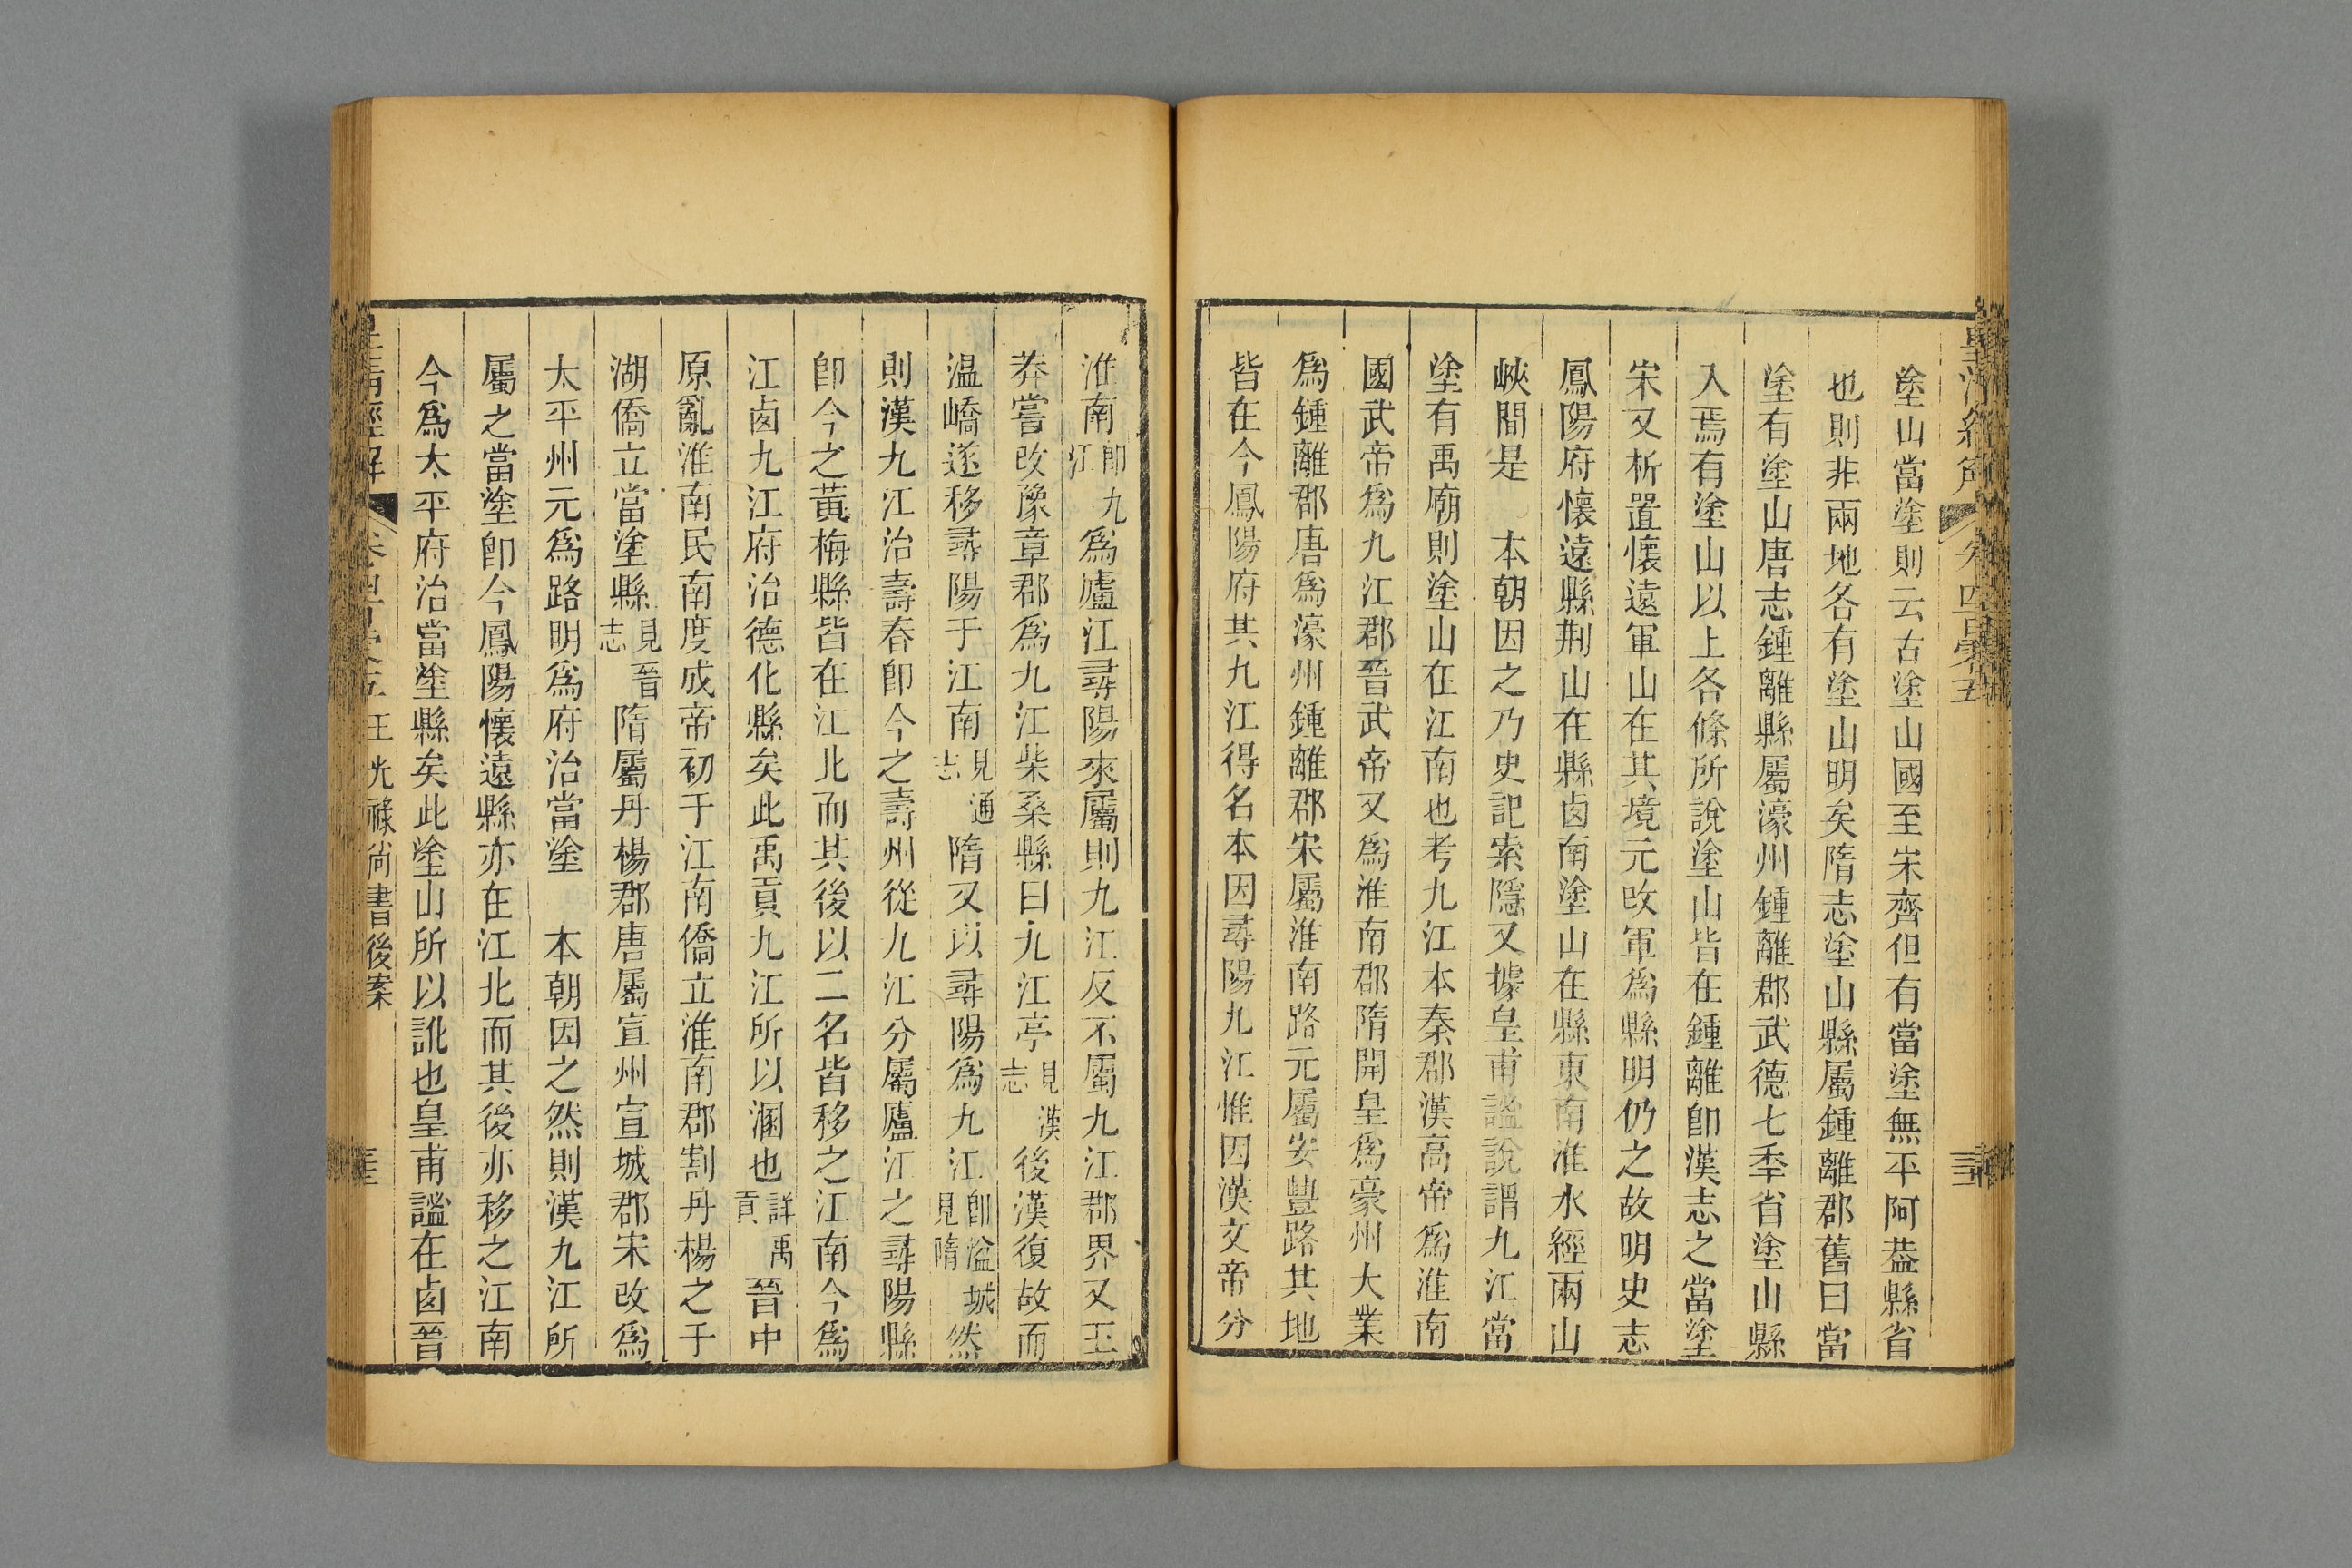 塗山當塗則云古塗山國至宋齊但有當塗無平阿葢縣省
也則非兩地各有塗山明矣隋志塗山縣屬鍾離郡舊曰當
塗有塗山唐志鍾離縣屬濠州鍾離郡武德七秊省塗山縣
入焉有塗山以上各條所說塗山皆在鍾離卽漢志之當塗
宋又析置懷遠軍山在其境元改軍爲縣明仍之故明史志
鳳陽府懷遠縣荆山在縣卥南塗山在縣東南淮水經兩山
峽間是　本朝因之乃史記索隱又據皇甫謐說謂九江當
塗有禹廟則塗山在江南也考九江本秦郡漢高帝爲淮南
國武帝爲九江郡晉武帝又爲淮南郡隋開皇爲豪州大業
爲鍾離郡唐爲濠州鍾離郡宋屬淮南路元屬安豐路其地
皆在今鳳陽府其九江得名本因尋陽九江惟因漢文帝分
淮南卽九江爲廬江尋陽來屬則九江反不屬九江郡界又王
莽嘗改豫章郡爲九江柴桑縣曰九江亭見漢志後漢復故而
温嶠遂移尋陽于江南見通志隋又以尋陽爲九江卽湓城見隋然
則漢九江治壽春卽今之壽州從九江分屬廬江之尋陽縣
卽今之黃梅縣皆在江北而其後以二名皆移之江南今爲
江卥九江府治德化縣矣此禹貢九江所以溷也詳禹貢晉中
原亂淮南民南度成帝初于江南僑立淮南郡割丹楊之于
湖僑立當塗縣見晉志隋屬丹楊郡唐屬宣州宣城郡宋改爲
太平州元爲路明爲府治當塗　本朝因之然則漢九江所
屬之當塗卽今鳳陽懷遠縣亦在江北而其後亦移之江南
今爲太平府治當塗縣矣此塗山所以訛也皇甫謐在卥晉
皇清經解　王光祿尚書後案